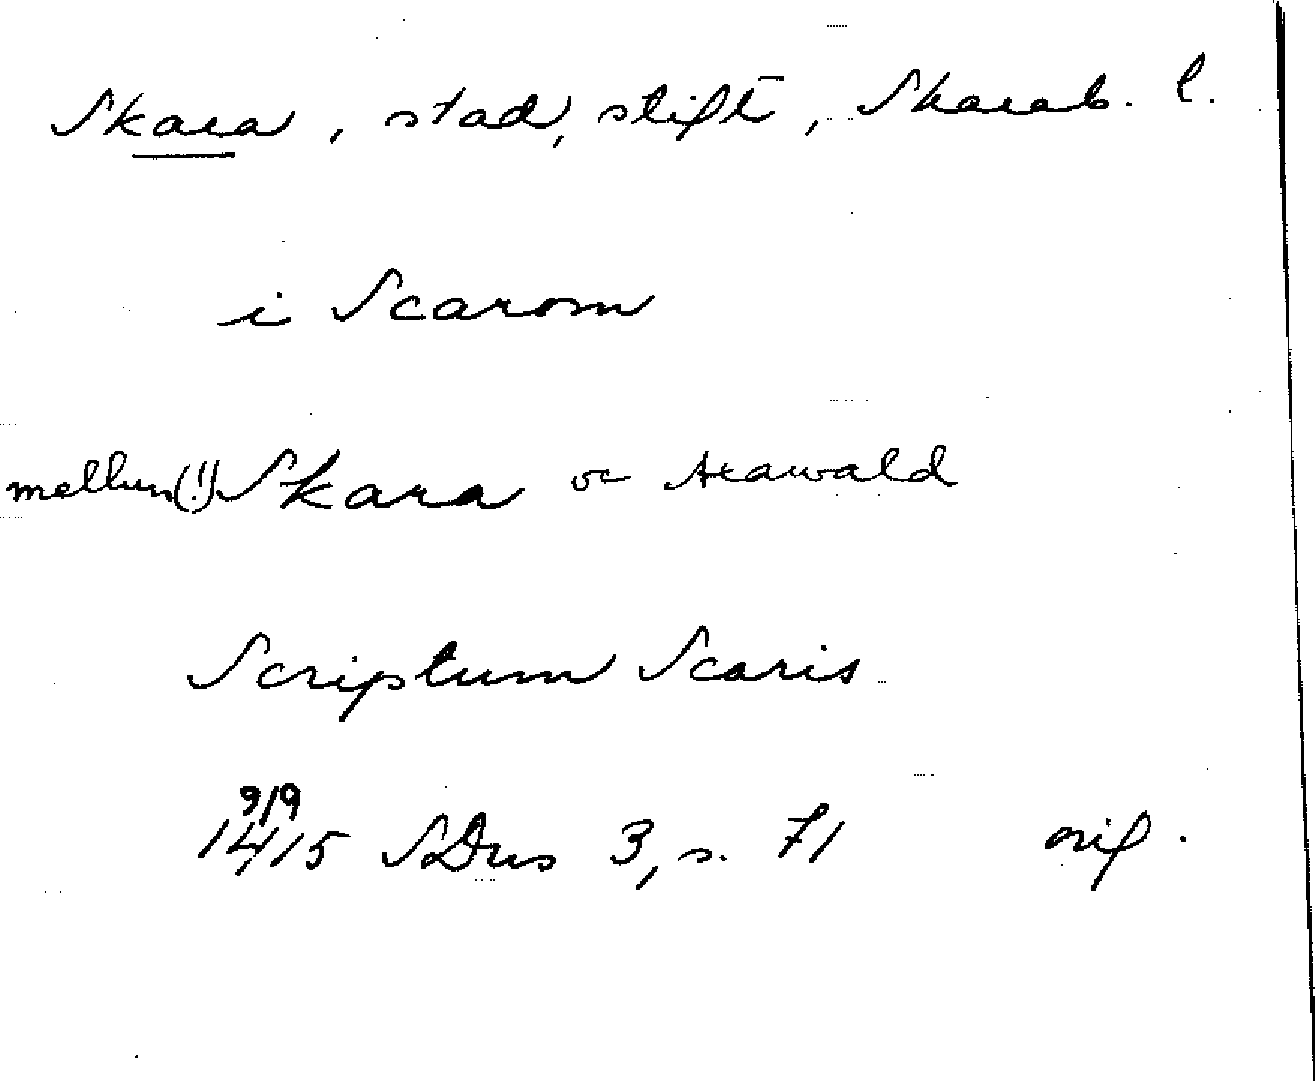 Skara, stad, stift, Skarab. l.
i Scarom
mellun(!) Skara oc Axawald
Scriptum Scaris
1415 9/9 SDns 3, s. 71 orig.